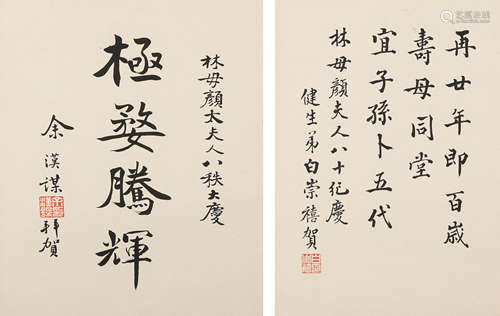 再廿年即百歲
壽母同堂
宜子孫卜五代
林母顏夫人八十紀慶
健生弟白崇禧賀
林母顏太夫人八秩大慶
極婺騰輝
余漢謀
拜賀